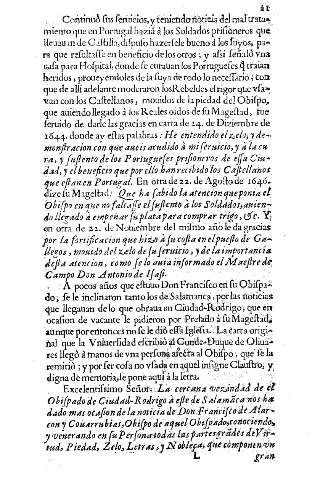 21
Continuò sus servicios, y teniendo noticia del mal tratamiento
que en Portugal hazià à los Soldados prisioneros que
lleuauan de Castilla, dispuso hazerse le bueno à los suyos, para
que resultasse en beneficio de los otros; y assi señalò vna
casa para Hospital, donde se curauan los Portugueses q̃ traìan
heridos, proueyendoles de la suya de todo lo necessario; con
que de alli adelante moderaron los Rebeldes el rigor que vsauan
con los Castellanos, mouidos de la piedad del Obispo,
que auiendo llegado à los Reales oidos de su Magestad, fue
seruido de darle las gracias en carta de 24. de Diziembre de
1644. donde ay estas palabras: He entendido el zelo, y demonstracion
con que aueis acudido à mi seruicio, y à la cura,
y sustento de los Portugueses prisioneros de essa Ciudad,
y el beneficio que por ello han recibido los Castellanos
que estan en Portugal. En otra de 22. de Agosto de 1646.
dize su Magestad: Que ha sabido la atencion que ponia el
Obispo en que no faltasse el sustento à los Soldados, auiendo
llegado à empeñar su plata para comprar trigo, &c. Y
en otra de 22. de Nouiembre del mismo año le da gracias
por la fortificacion que hizo à su costa en el puesto de Gallegos,
mouido del zelo de su seruicio, y de la importancia
desta atencion, como se lo auia informado el Maestre de
Campo Don Antonio de Isasi.
A pocos años que estuuo Don Francisco en su Obispado,
se le inclinaron tanto los de Salamanca, por las noticias
que llegauan de lo que obraua en Ciudad-Rodrigo, que en
ocasion de vacante le pidieron por Prelado à su Magestad,
aunque por entonces no se le diò essa Iglesia. La carta original
que la Vniuersidad escribiò al Conde-Duque de Oliuares
llegò à manos de vna persona afecta al Obispo, que se la
remitiò; y por ser cosa no vsada en aquel insigne Claustro, y
digna de memoria, se pone aqui à la letra.
Excelentissimo Señor: La cercana vezindad de el
Obispado de Ciudad-Rodrigo à este de Salamãca nos ha
dado mas ocasion de la noticia de Don Francisco de Alarcon
y Couarrubias, Obispo de aquel Obispado, conociendo,
y venerando en su Persona todas las partes grãdes de Virtud,
Piedad, Zelo, Letras, y Nobleça, que componen vn
L gran